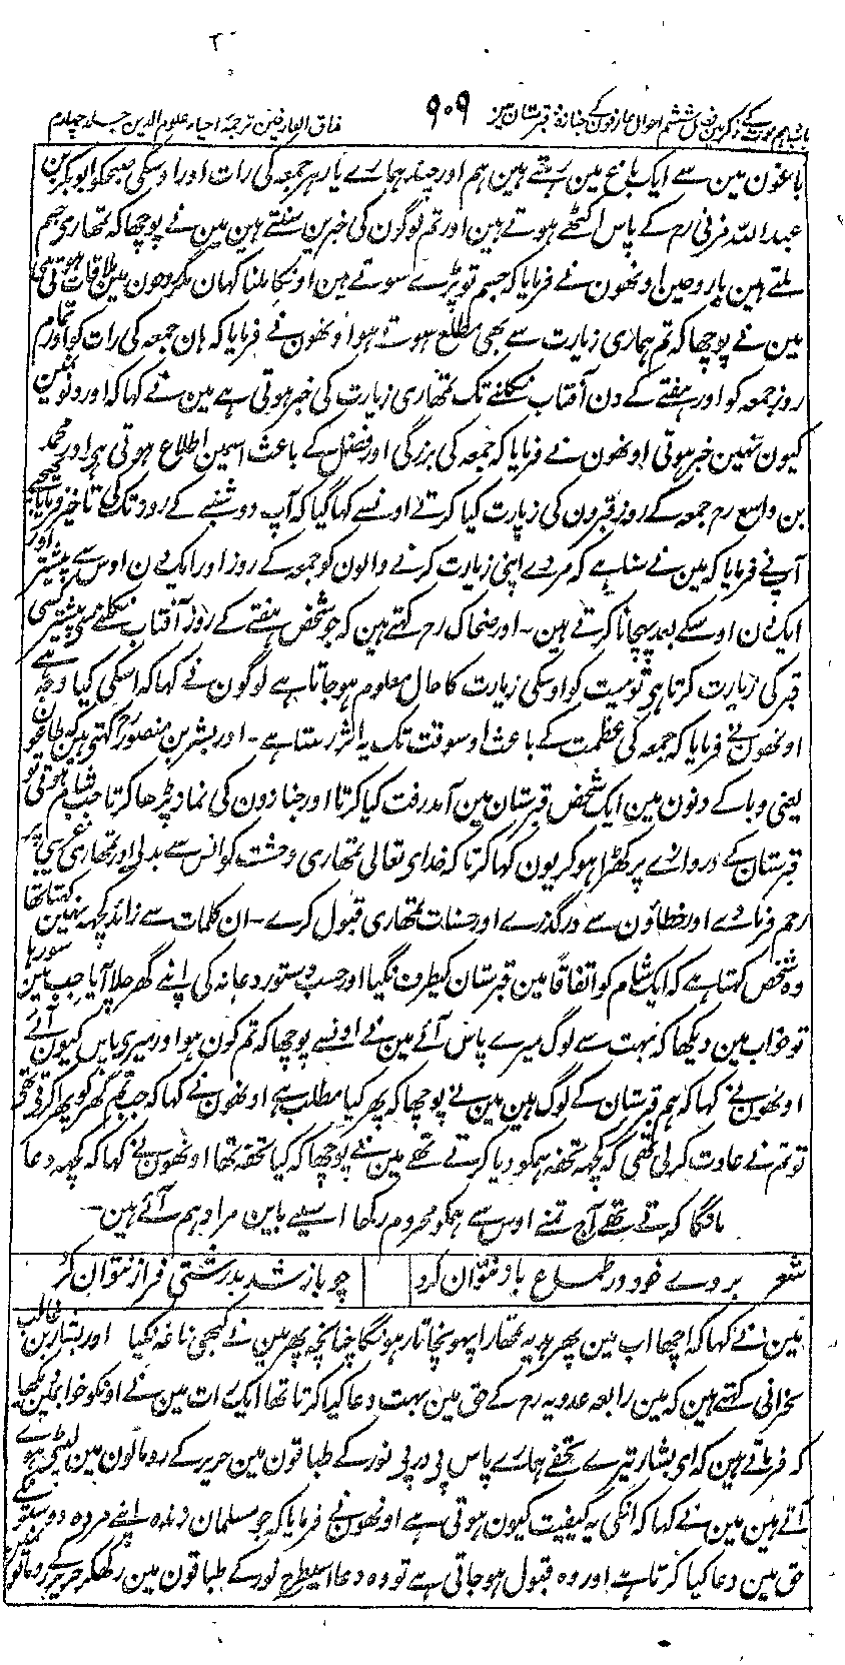 باب ہم موت کے ذکر مین فصل ششم احوال عارفون کے جنازہ قبرستان میں ۹۰۹ مذاق العارفین ترجمۂ احیاء علوم الدین جلد چہارم
باغون مین سے ایک باغ مین رہتے ہین ہم اور چند ہمارے یار ہر جمعہ کی رات اور اوسکی صبحکو ابوبکر بن
عبداللہ مزنی رح کے پاس اکٹھے ہوتے ہین اور تم لوگون کی خبرین سنتے ہین مین نے پوچھا کہ تمھارے جسم
ملتے ہین یا روحین اونھون نے فرمایا کہ جسم تو پڑے سوتے ہین اونکا ملنا کہان مگر روحون مین ملاقات ہوتی ہی
مین نے پوچھا کہ تم ہماری زیارت سے بھی مطلع ہوتے ہو اونھون نے فرمایا کہ ہان جمعہ کی رات کو اور تمام
روز جمعہ کو اور ہفتے کے دن آفتاب نکلنے تک تمھاری زیارت کی خبر ہوتی ہے مین نے کہا کہ اور دنونمین
کیون نہین خبر ہوتی اونھون نے فرمایا کہ جمعہ کی بزرگی اور فضل کے باعث اسمین اطلاع ہوتی ہے اور محمد
بن واسع رح جمعہ کے روز قبرون کی زیارت کیا کرتے اونسے کہا گیا کہ آپ دو شنبے کے روز تک کی تاخیر فرمایئے
آپنے فرمایا کہ مین نے سنا ہے کہ مردے اپنی زیارت کرنے والون کو جمعہ کے روز اور ایکدن اوس سے پیشتر اور
ایکدن اوسکے بعد پہچانا کرتے ہین۔ اور ضحاک رح کہتے ہین کہ جو شخص ہفتے کے روز آفتاب نکلنے سے پیشتر کسی
قبر کی زیارت کرتا ہی تو میت کو اوسکی زیارت کا حال معلوم ہوجاتا ہے لوگون نے کہا کہ اسکی کیا وجہ ہے
اونھون نے فرمایا کہ جمعہ کی عظمت کے باعث اوسوقت تک یہ اثر رہتا ہے۔ اور بشر بن منصور رح کہتے ہین کہ طاعون
یعنی وبا کے دنون مین ایک شخص قبرستان مین آمدرفت کیا کرتا اور جنازون کی نماز پڑھا کرتا جب شام ہوتی تو
قبرستان کے دروازے پر کھڑا ہوکر یون کہا کرتا کہ خدای تعالی تمھاری وحشت کو انس سے بدلے اور تمھاری غریبی پر
رحم فرماوے اور خطاؤن سے درگذرے اور حسنات تمھاری قبول کرے۔ ان کلمات سے زائد کچھ نہین کہتا تھا
وہ شخص کہتا ہے کہ ایک شام کو اتفاقاً مین قبرستان کیطرف نگیا اور حسب دستور دعا نہ کی اپنے گھر چلا آیا جب مین سو رہا
تو خواب مین دیکھا کہ بہت سے لوگ میرے پاس آئے مین نے اونسے پوچھا کہ تم کون ہو اور میرے پاس کیون آئے
اونھون نے کہا کہ ہم قبرستان کے لوگ ہین مین نے پوچھا کہ پھر کیا مطلب ہے اونھون نے کہا کہ جب تم گھر کو پھرا کرتے تھے
تو تم نے عادت کرلی تھی کہ کچھ تحفہ ہمکو دیا کرتے تھے مین نے پوچھا کہ کیا تحفہ تھا اونھون نے کہا کہ کچھ دعا
مانگا کرتے تھے آج تمنے اوس سے ہمکو محروم رکھا اسیلیے باین مراد ہم آئے ہین۔
شعر بروے خود در طماع باز نتوان کرد چو باز شد بدرشتی فراز نتوان کرد
مین نے کہا کہ اچھا اب مین پھر ہدیہ تمھارا پہونچاتا رہونگا چنانچہ پھر مین نے کبھی ناغہ نکیا اور بشار بن غالب
نجرانی کہتے ہین کہ مین رابعہ عدویہ رح کے حق مین بہت دعا کیا کرتا تھا ایک رات مین نے اونکو خواب مین دیکھا
کہ فرماتے ہین کہ ای بشار تیرے تحفے ہمارے پاس پی در پی نور کے طباقون مین حریر کے رومالون مین لپٹے ہوئے
آتے ہین مین نے کہا کہ انکی یہ کیفیت کیون ہوتی ہے اونھون نے فرمایا کہ جو مسلمان زندہ اپنے مردہ دوستون کے
حق مین دعا کیا کرتا ہے اور وہ قبول ہوجاتی ہے تو وہ دعا اسیطرح نور کے طباقون مین رکھکر حریر کے رومالونمین